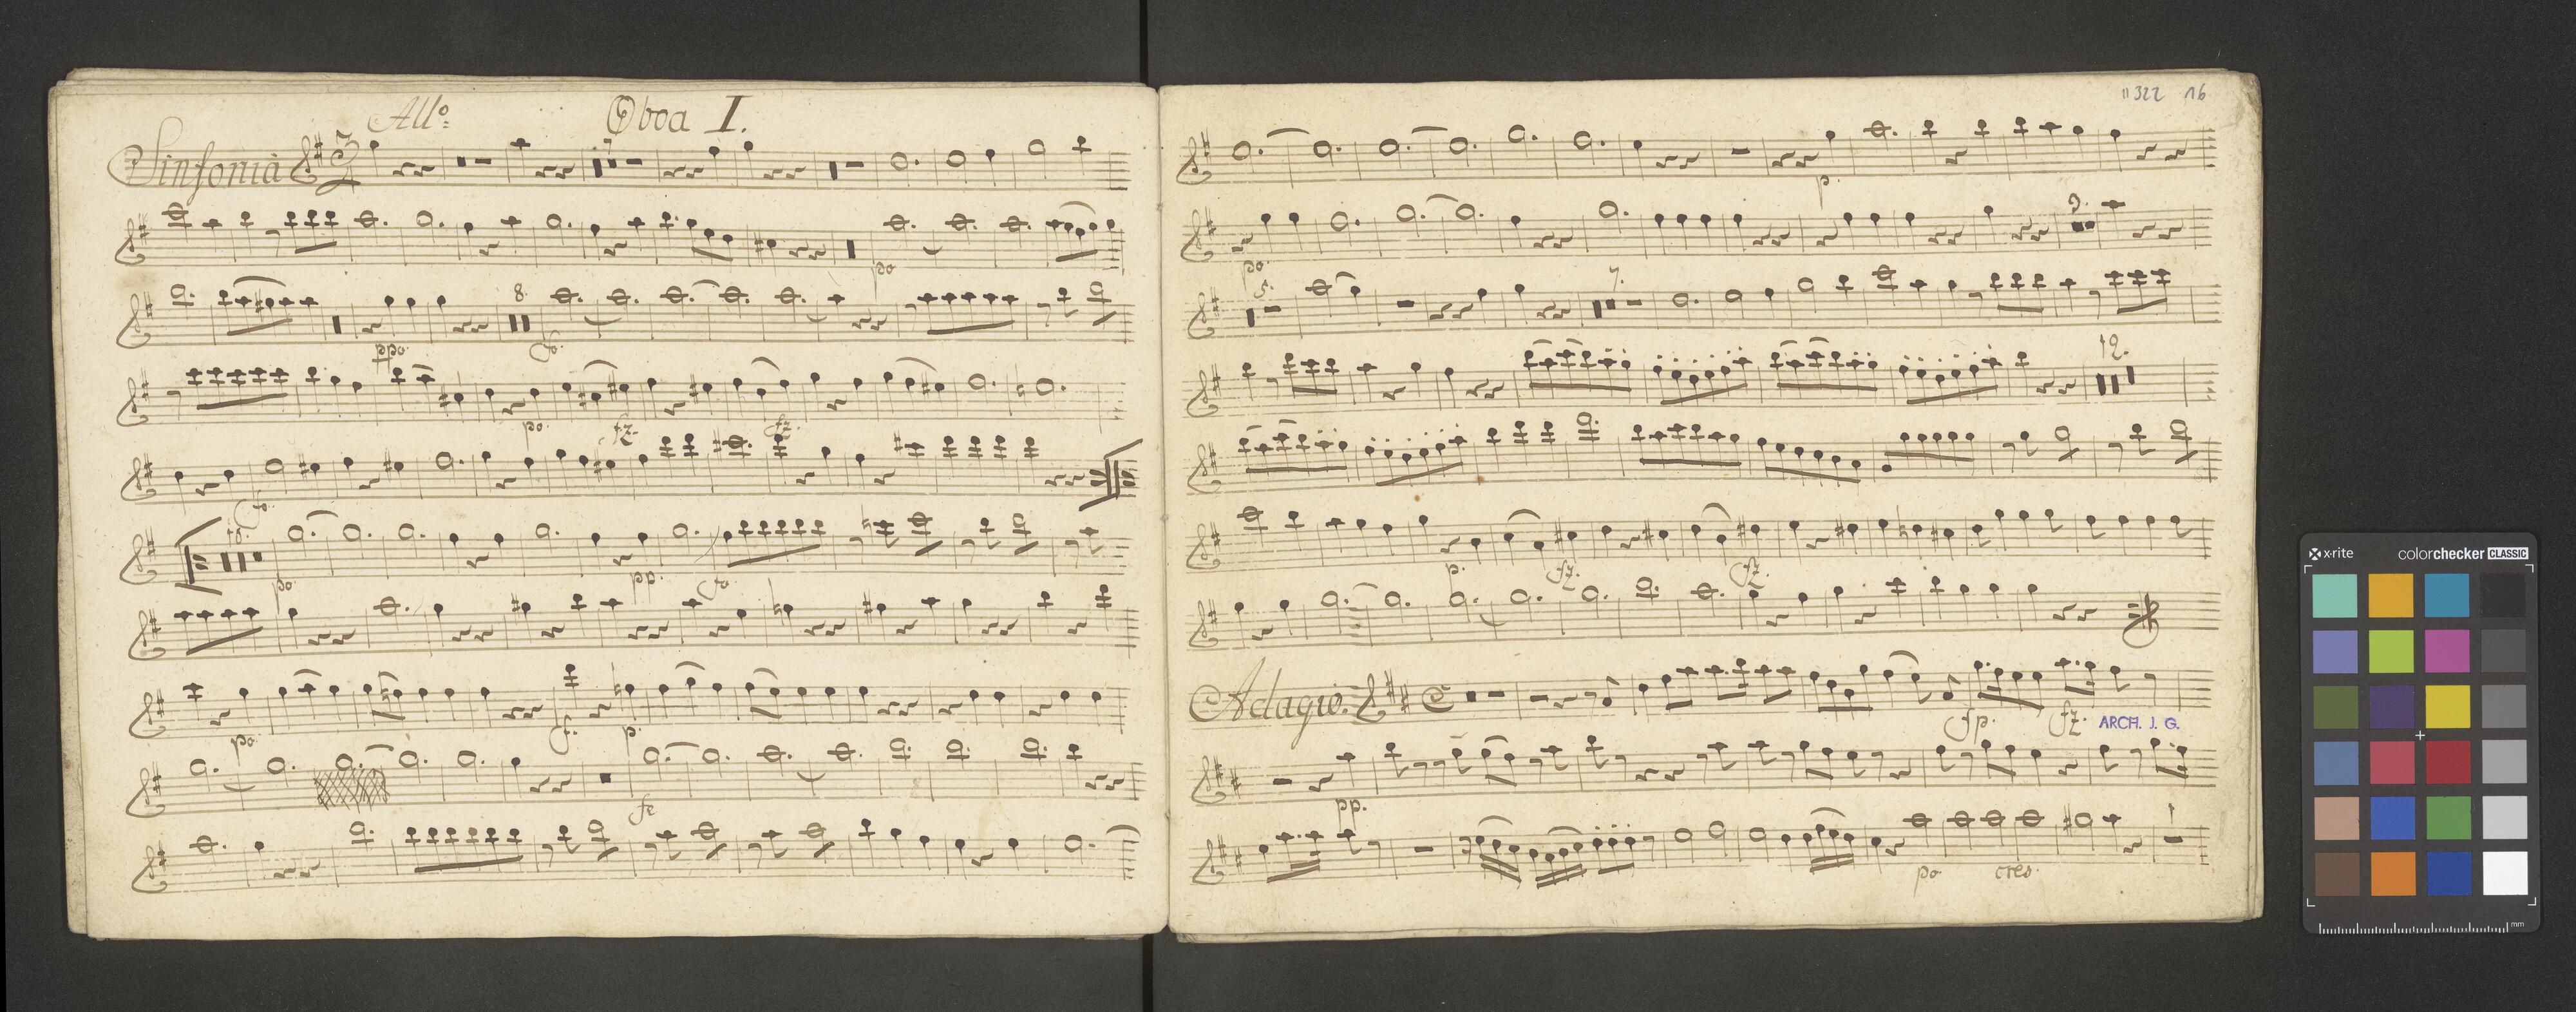 All⁰: Oboa I.
Sinfonia
7
po
8.
ppo. fo.
po. fz. fz.
fo.
18.
po. pp. fo.
po. f. p.
fe
11322 16
p.
po. 9.
5. 7.
12.
p. fz. fz.
Adagio.
fp. fz. ARCH. J. G.
pp.
1
po cres.
x·rite colorchecker CLASSIC
mm